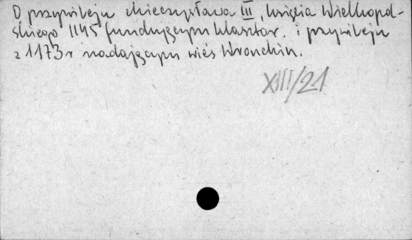 O przywileju Mieczysława III, księcia Wielkopol-
skiego 1145 fundującym klasztor. i przywileju
z 1173 r nadającym wieś Wronchin.
XIII/21